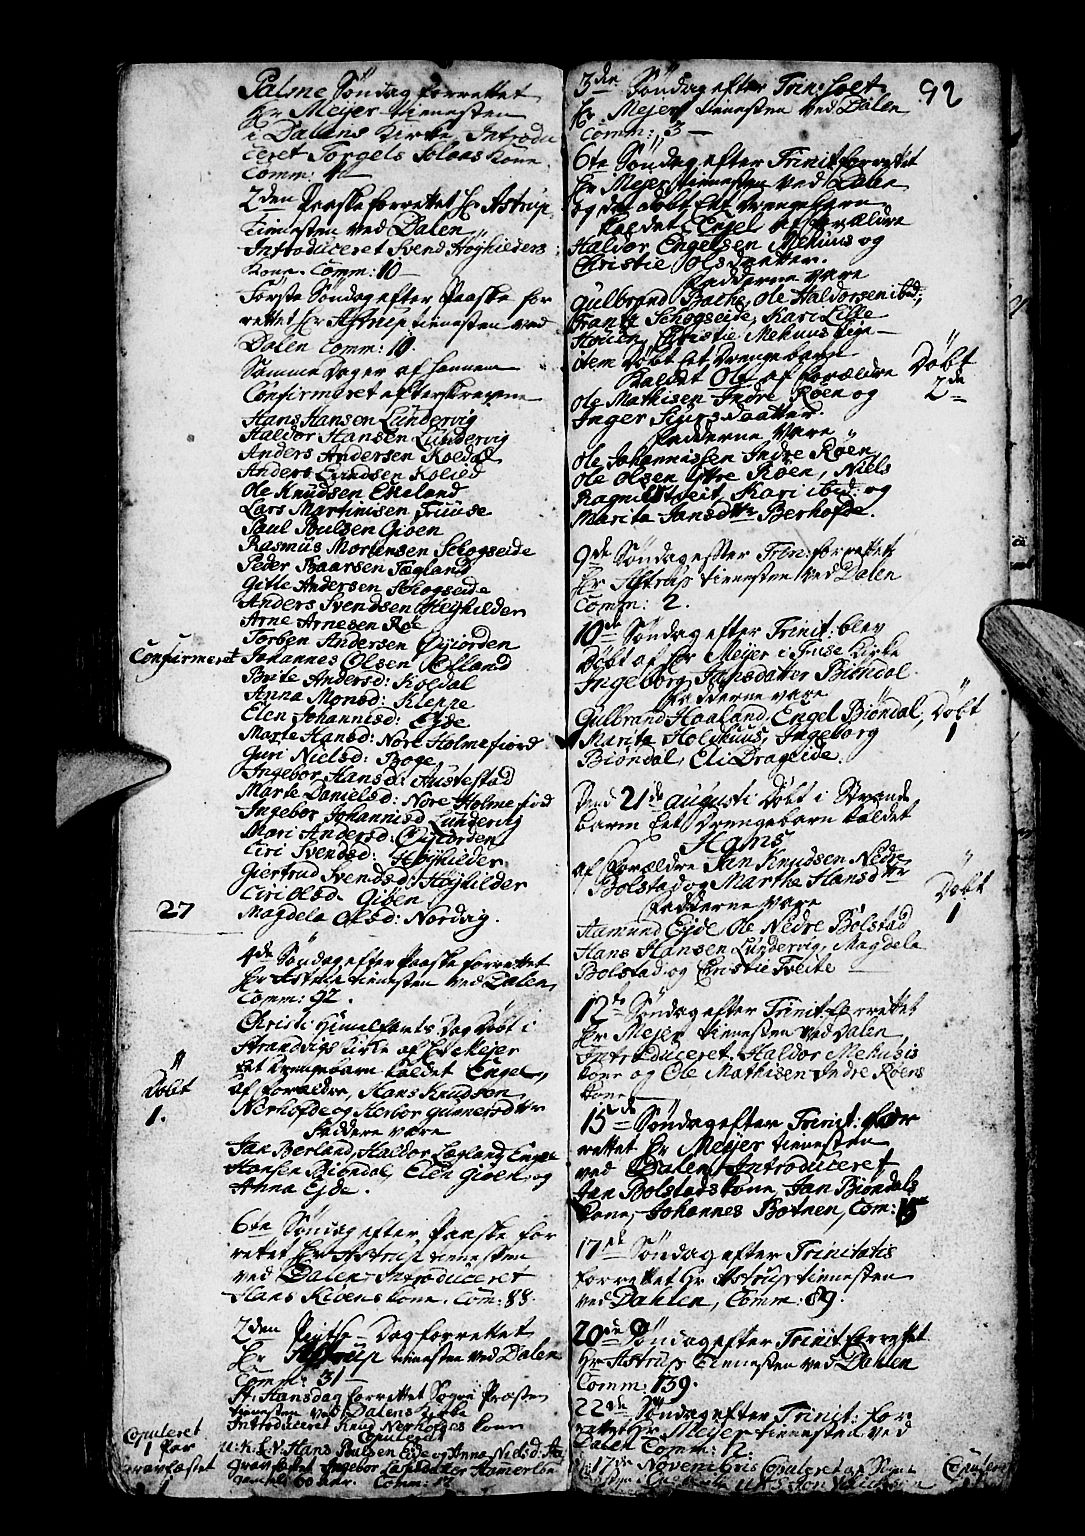 Palme Søndag forrettet
Hr Meijer tienesten
i Dalens Kirke, Introdu
ceret Torgels Solaas Kone
Comm:
2den Paaske forrettet Hr Astrup
tienesten ved Dalen
Introduceret Svend Høyhilders
Kone. Comm: 10
Første Søndag efter Paaske for
rettet Hr Astrup tienesten ved
Dalen Comm: 10.
Samme Dag er af hannem
Confirmeret efterskrevne
Hans Hansen Lündervig
Haldor Hansen Lündervig
Anders Andersen Koldal
Anders Evindsen
Ole Knudsen Eiteland
Lars Martinisen
Paul Poulsen Gioen
Rasmus Mortensen Schogseide
Peder Baarsen Tøgland
Gitle Andersen Schogseide
Anders Svendsen Høyhilder
Arne Arnesen Roe
Torben Andersen Øyiorden
Confirmeret
Johannes Olsen
Brite Andersd: Koldal
Anna Monsd: Kleppe
Elen Johannisd: Ejde
Marte Hansd: Nore Holmefiord
Guri Nielsd: Boge
Ingebor Hansd: Hustestad
Marte Danielsd: Nore Holmefiord
Ingebor Johannisd Lundervig
Mari Andersd: Øyiorden
Ciri Svendsd: Høyhilder
Giertrud Svendsd: Høyhilder
Ciri Olsd: Gioen
27
Magdela Olsd: Nordag.
4de Søndag efter Paaske forrettet
Hr Astrup tienesten ved Dalen
Comm: 92.
Christi Himelfarts Dag Døbt i
Strandvigs Kirke af Hr Meijer
Døbt
1.
Et Drengebarn kaldet Engel,
af forældre, Hans Knudsen
Nerhofde og Herbor Gunnersdttr
Faddere vare
Jan Berland, Haldor Løgland Engel
Hansen Biøndal, Elen Gioen, og
Anna Ejde.
6te Søndag efter Paaske for
rettet Hr Astrup tienesten
ved Dalen Introduceret
Hans Kioens kone. Com: 88.
2den Pintse-Dag forrettet
Hr Astrup tienesten ved Dalen
Comm: 31
St. Hansdag forrettet Sogne Præsten
tienesten ved Dalens Kirke
Introduceret Knud Nerhofdes kone
Copuleret
1 Par
Copuleret
Hans Poulsen Eide og Anna Nielsd:
Gravfæstet
Gravfæstet Ingebor Larsdatter
60 aar. Comm:
92
3de Søndag efter Trin: holt
Hr. Mejer tienesten ved Dalen
Comm: 3
6te Søndag efter Trinit forrettet
Hr Mejer tienesten ved Dalen
og der døbt Et Drengebarn
kaldet Engel af forældre
Haldor Engelsen Mehuus og
Christie Olsdatter.
Fadderne vare
Gulbrand Bache, Ole Haldorsen ibd,
Frantz Schogseide, Kari Lille
Houen, Christie Mehuus Pige
item døbt Et Drengebarn
Døbt
2de
Kaldet Ole af forældre
Ole Mathisen Indre Røen og
Inger Siursdaatter.
Fadderne vare
Ole Johannissen Indre Røen,
Ole Olsen Yttre Røen, Niels
Ragnildstveit, Kari ibid: og
Marita Jansdttr Berhofde.
9de Søndag efter Trin: forrettet
Hr Astrup tienesten ved Dalen
Comm: 2.
10de Søndag efter Trinit: blev
Døbt af Hr Meijer i Fuse Kirke
Ingeborg Hansdatter Biøndal
Fadderne vare
Gulbrand Haaland, Engel Biøndal,
Døbt
1
Marita Holdhuus, Ingeborg
Biøndal, Eli Drageide.
Dend 21de Augusti Døbt i Strande
barm Eet Drengebarn kaldet
Hans
af forældre Jan Knudsen Nedre
Bolstad og Martha Hansdttr
Døbt
1
Fadderne vare
Aamund Ejde, Ole Nedre Bolstad
Hans Hansen Lündervig, Magdela
Bolstad og Christie Tveite
12te Søndag efter Trinit: forrettet
Hr Mejer tienesten ved Dalen
Introduceret, Haldor Mehuus
Kone og Ole Mathisen Indre Røens
kone
15de Søndag efter Trinit: for
rettet Hr Meijer tienesten
ved Dalen Introduceret
Jan Bolstads kone, Jan Biøndals
kone, Johannes Botnen, Com: 15
17de Søndag efter Trinitatis
forrettet Hr Astrup tienesten
ved Dahlen, Comm: 89.
20de Søndag efter Trinit forrettet
Hr Astrup tienesten ved Dahlen
Comm: 139.
22de Søndag efter Trinit: for
rettet Hr Meijer tienesten ved
Dalen Comm: 12.
17de Novembris Copuleret af
Copuleret